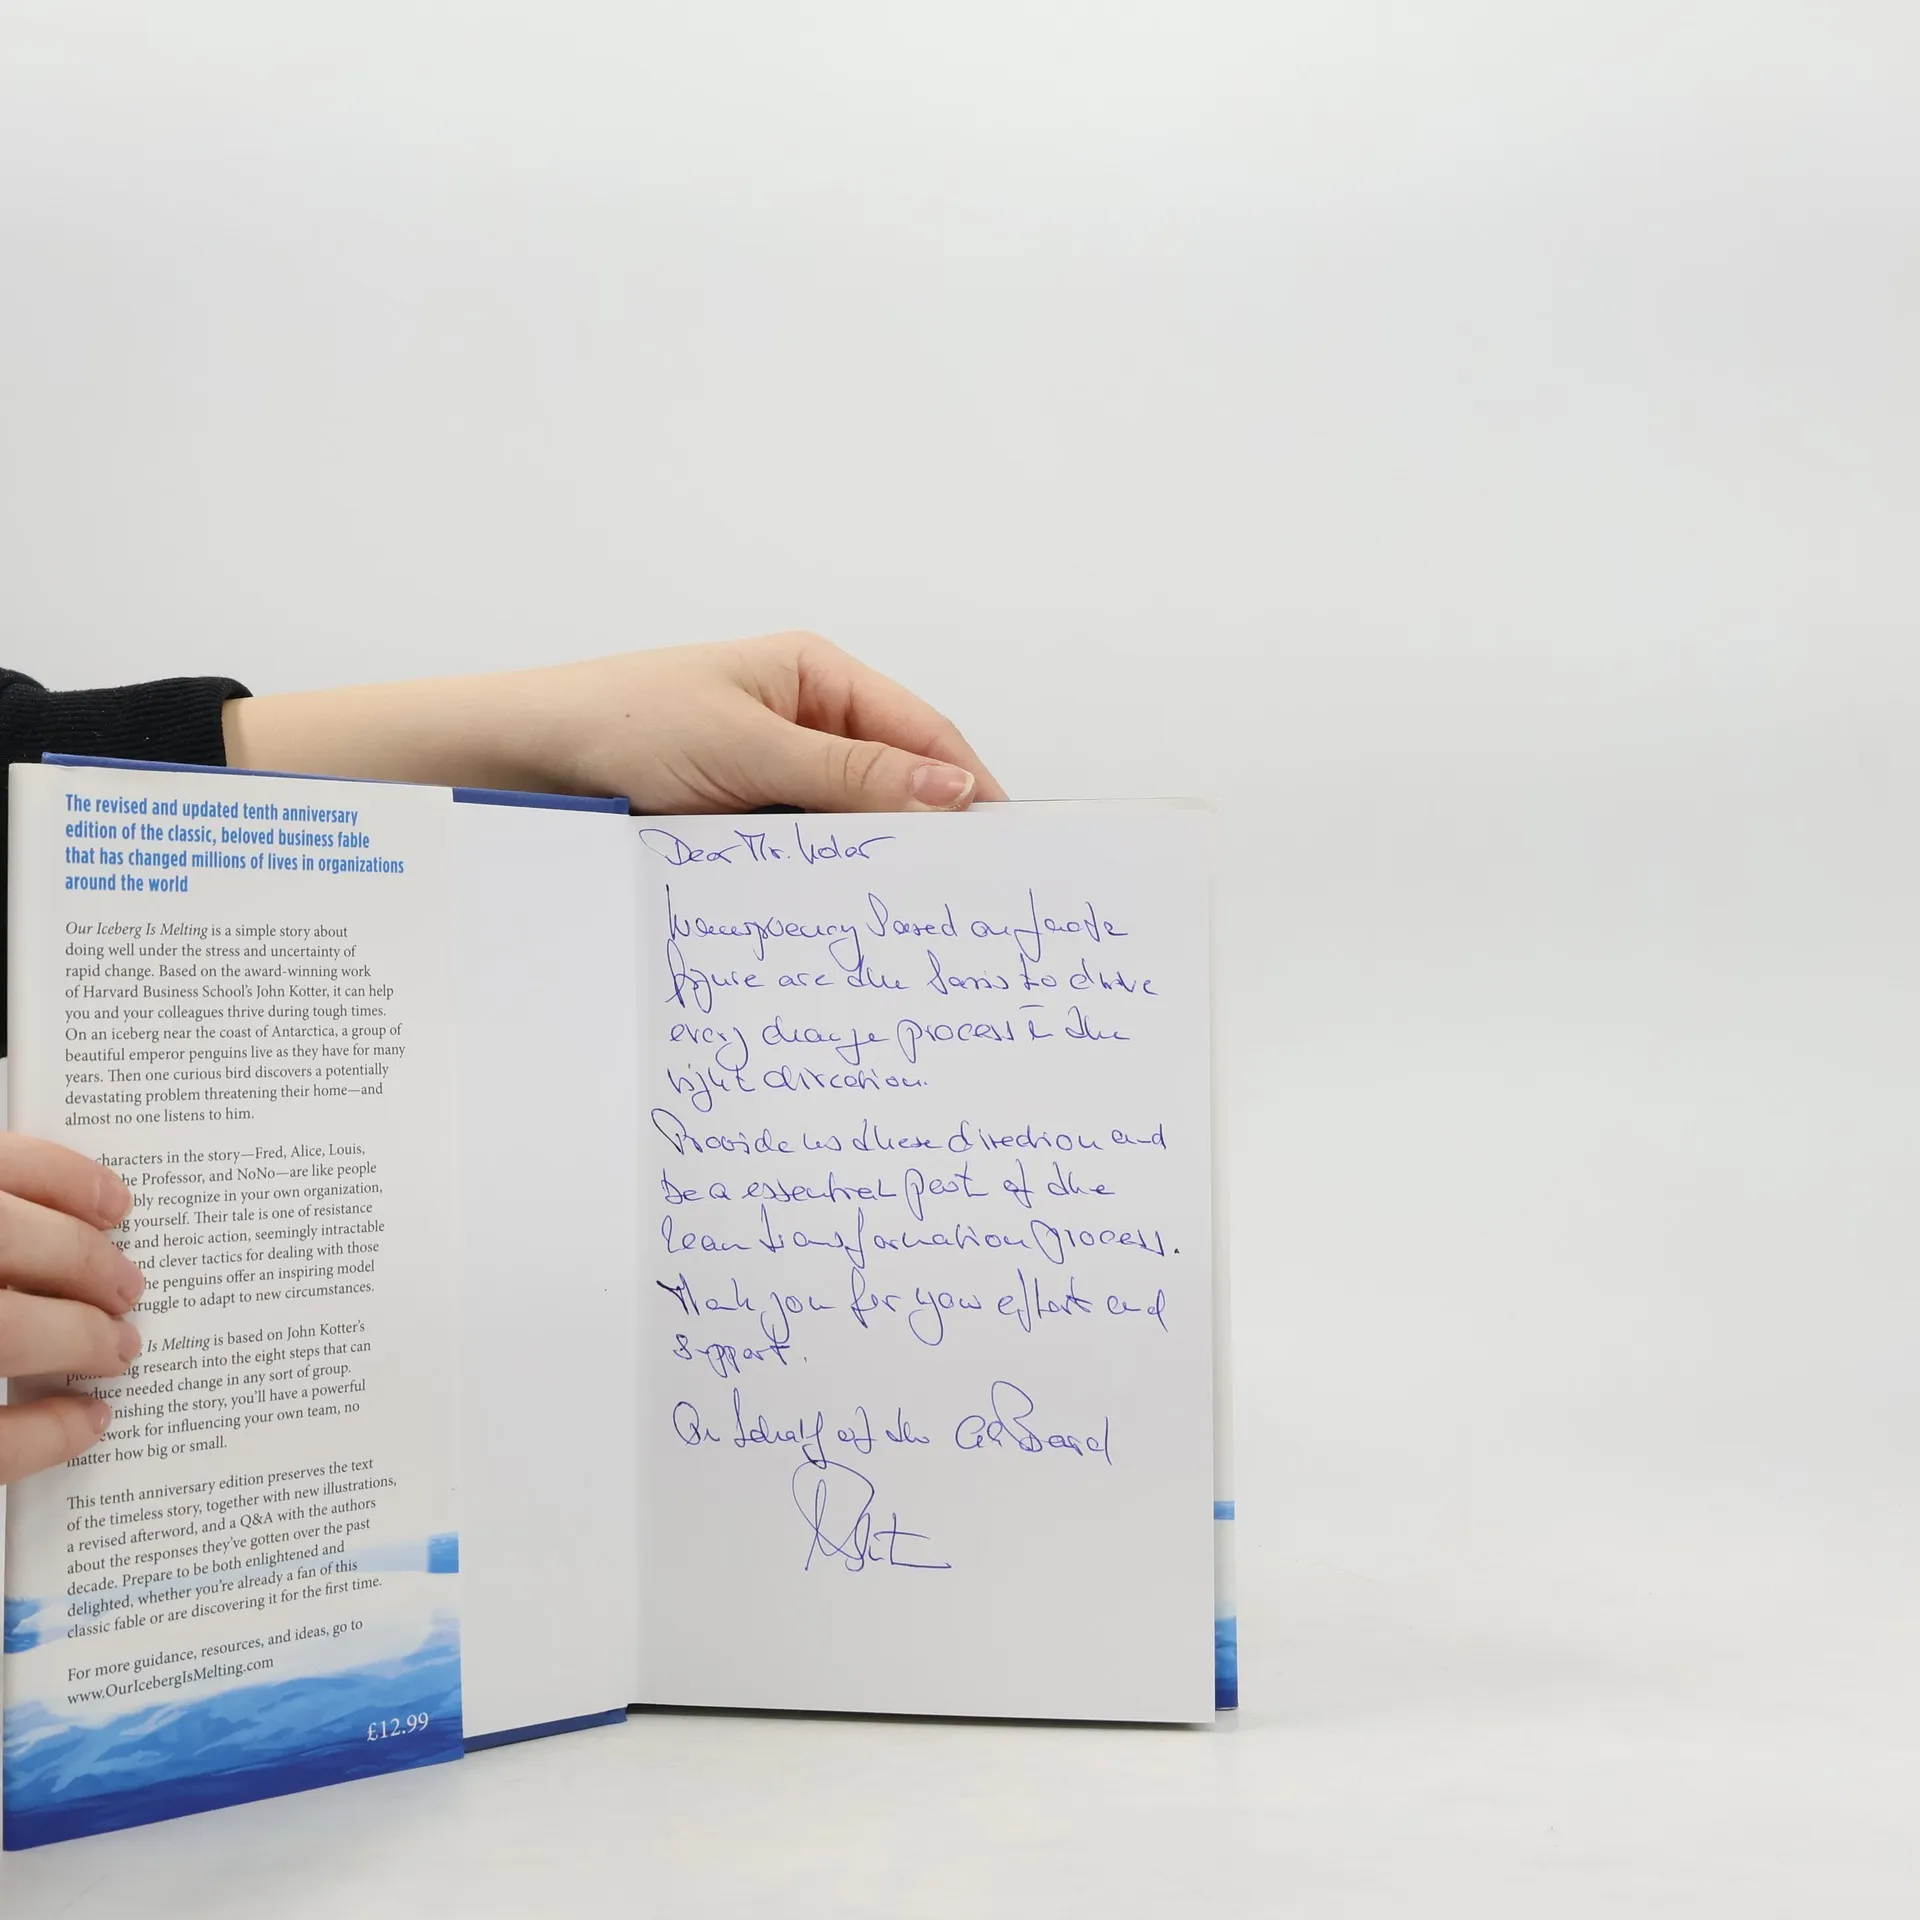 The revised and updated tenth anniversary
edition of the classic, beloved business fable
that has changed millions of lives in organizations
around the world
Our Iceberg Is Melting is a simple story about
doing well under the stress and uncertainty of
rapid change. Based on the award-winning work
of Harvard Business School's John Kotter, it can help
you and your colleagues thrive during tough times.
On an iceberg near the coast of Antarctica, a group of
beautiful emperor penguins live as they have for many
years. Then one curious bird discovers a potentially
devastating problem threatening their home—and
almost no one listens to him.
characters in the story—Fred, Alice, Louis,
he Professor, and NoNo—are like people
bly recognize in your own organization,
ng yourself. Their tale is one of resistance
ge and heroic action, seemingly intractable
nd clever tactics for dealing with those
he penguins offer an inspiring model
ruggle to adapt to new circumstances.
Is Melting is based on John Kotter's
ng research into the eight steps that can
duce needed change in any sort of group.
nishing the story, you'll have a powerful
ework for influencing your own team, no
matter how big or small.
This tenth anniversary edition preserves the text
of the timeless story, together with new illustrations,
a revised afterword, and a Q&A with the authors
about the responses they've gotten over the past
decade. Prepare to be both enlightened and
delighted, whether you're already a fan of this
classic fable or are discovering it for the first time.
For more guidance, resources, and ideas, go to
www.OurIcebergIsMelting.com
£12.99
Dear Mr. Kolar
based on facts
figure are the basis to drive
every change process in the
right direction.
Provide us these direction and
be a essential part of the
lean transformation process.
Thank you for your effort and
support.
On behalf of the Board